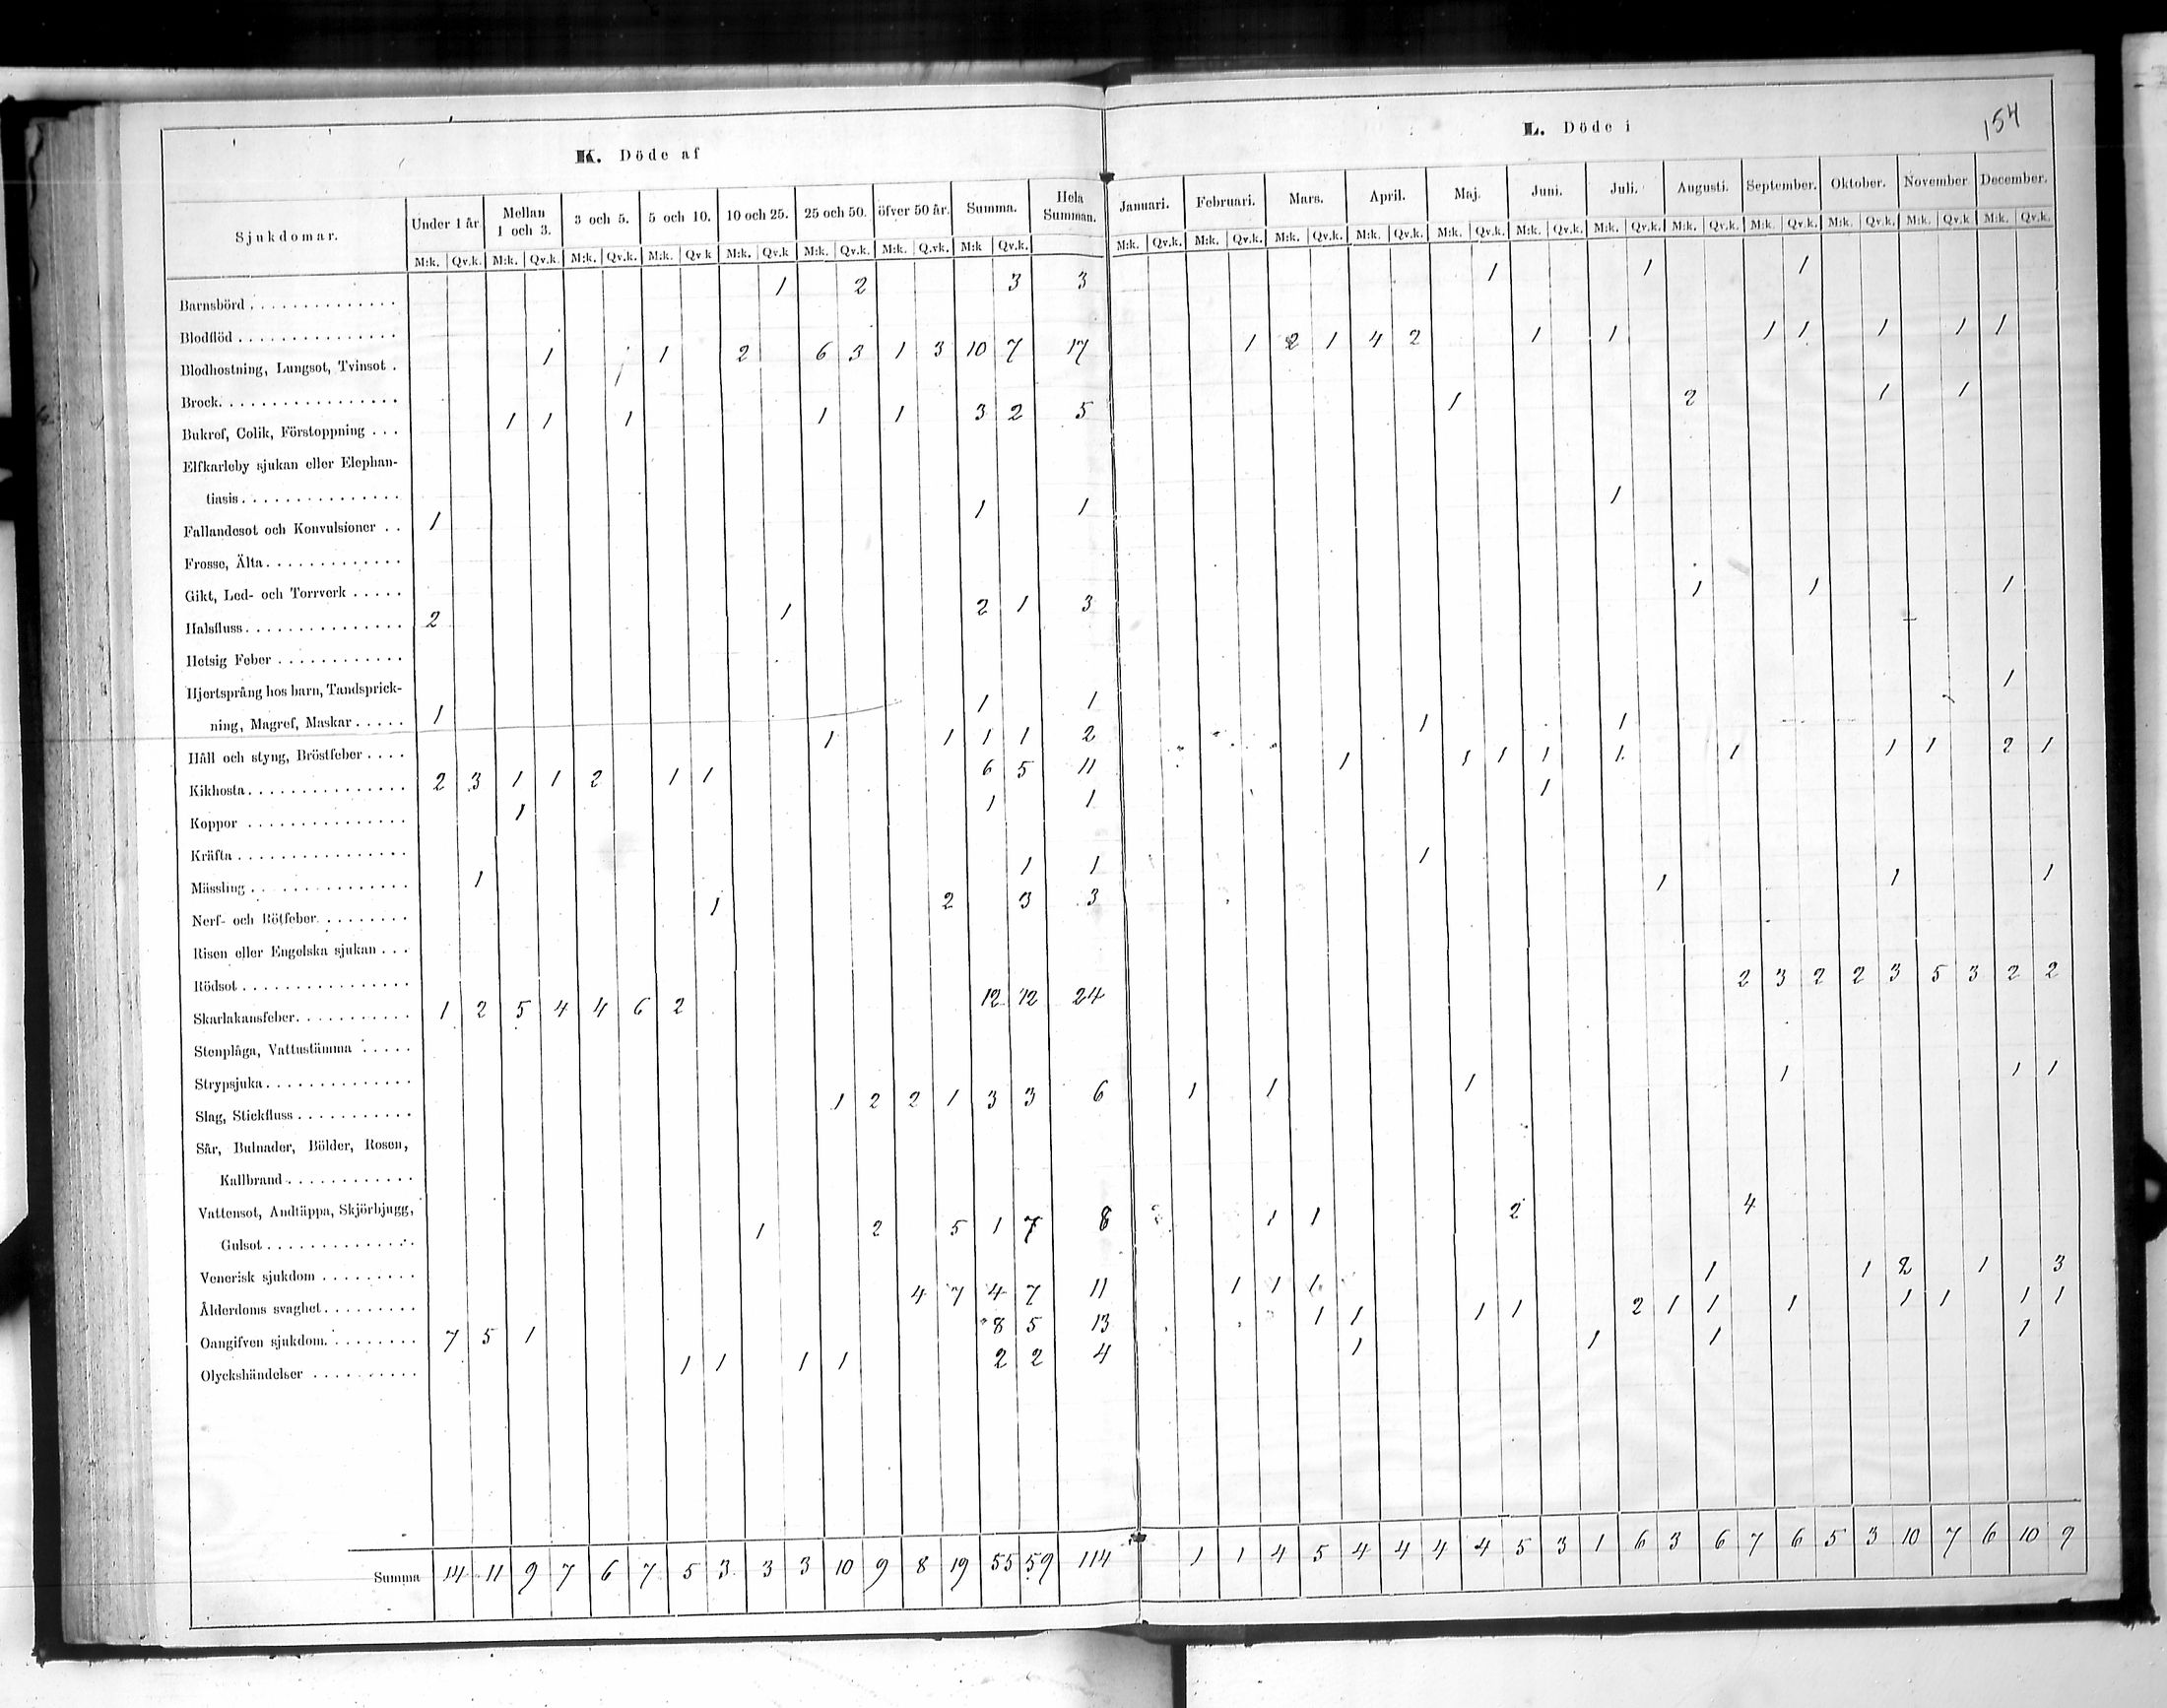 154
K. Döde af
L. Döde i
Sjukdomar. Under 1 år Mellan 1 och 3. 3 och 5. 5 och 10. 10 och 25. 25 och 50. öfver 50 år. Summa. Hela Summan. Januari. Februari. Mars. April. Maj. Juni. Juli. Augusti. September. Oktober. November December.
M:k. Qv.k. M:k. Qv.k. M:k. Qv.k. M:k. Qv k M:k. Qv.k M:k. Qv.k. M:k. Q.vk. M:k Qv.k. M:k. Qv.k. M:k. Qv.k. M:k. Qv.k. M:k. Qv.k. M:k. Qv.k. M:k. Qv.k. M:k. Qv.k. M:k. Qv.k. M:k. Qv.k. M:k. Qv.k. M:k. Qv.k. M:k. Qv.k.
Barnsbörd . . . 1 2 3 3 1 1 1
Blodflöd . . .
Blodhostning, Lungsot, Tvinsot . 1 1 2 6 3 1 3 10 7 17 1 2 1 4 2 1 1 1 1 1 1 1
Brock. . . .
Bukref, Colik, Förstoppning . . . 1 1 1 1 1 3 2 5 1 2 1 1
Elfkarleby sjukan eller Elephan-
tiasis. . . .
Fallandesot och Konvulsioner . . 1 1 1 1
Frosse, Älta. . . .
Gikt, Led- och Torrverk . . . . .
Halsfluss. . . . 2 1 2 1 3 1 1 1
Hetsig Feber . . .
Hjertsprång hos barn, Tandsprick-
ning, Magref, Maskar . . . . . 1 1 1 1
Håll och styng, Bröstfeber . . . . 1 1 1 1 2 1 1
Kikhosta. . . . 2 3 1 1 2 1 1 6 5 11 1 1 1 1 1 1 1 1 2 1
Koppor . . . 1 1 1 1
Kräfta . . .
Mässling . . . 1 1 1 1
Nerf- och Rötfeber. . . . 1 2 3 3 1 1 1
Risen eller Engelska sjukan . . .
Rödsot . . .
Skarlakansfeber. . . . 1 2 5 4 4 6 2 12 12 24 2 3 2 2 3 5 3 2 2
Stenplåga, Vattustämma . . . . .
Strypsjuka. . . .
Slag, Stickfluss . . . 1 2 2 1 3 3 6 1 1 1 1 1 1
Sår, Bulnader, Bölder, Rosen,
Kallbrand . . .
Vattensot, Andtäppa, Skjörbjugg,
Gulsot . . . 1 2 5 1 7 8 1 1 2 4
Venerisk sjukdom . . .
Ålderdoms svaghet. . . . 4 7 4 7 11 1 1 1 1 1 2 1 3
Oangifven sjukdom. . . . 7 5 1 8 5 13 1 1 1 1 2 1 1 1 1 1 1 1
Olyckshändelser . . . 1 1 1 1 2 2 4 1 1 1 1
Summa 14 11 9 7 6 7 5 3 3 3 10 9 8 19 55 59 114 1 1 4 5 4 4 4 4 5 3 1 6 3 6 7 6 5 3 10 7 6 10 9